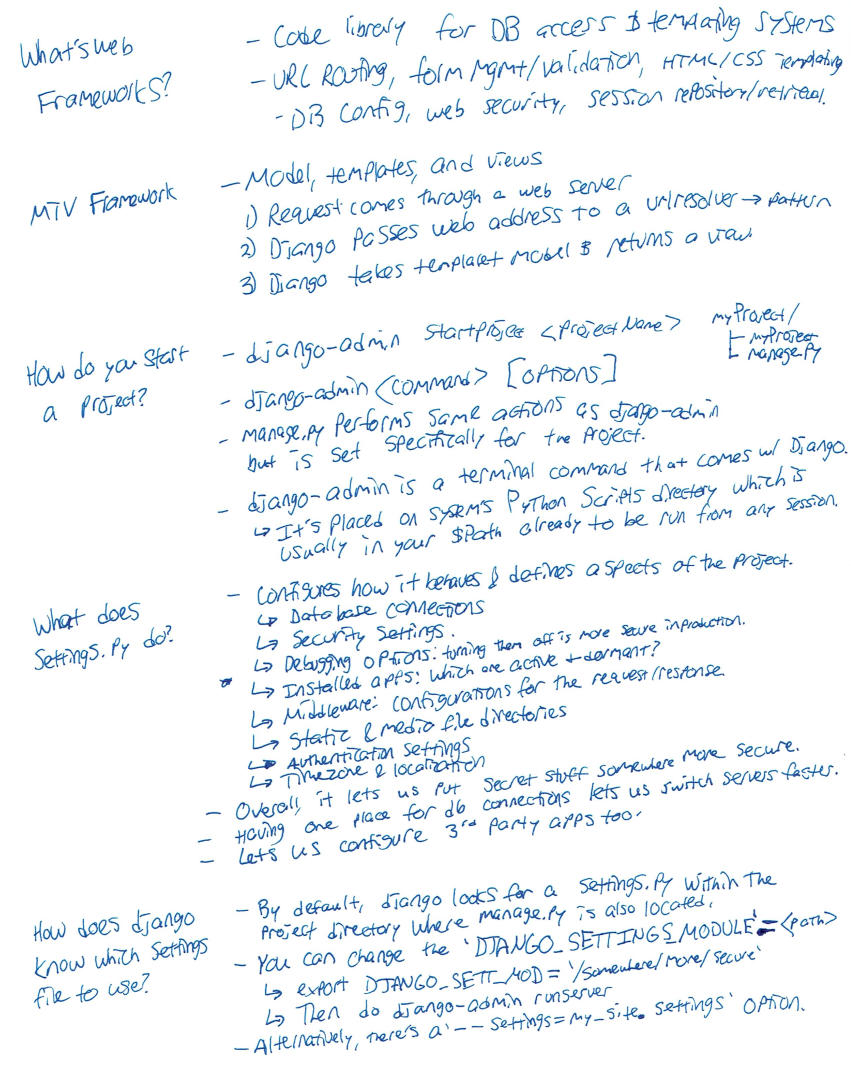 What's web
Frameworks?
- Code library for DB access & templating systems
- URL Routing, form mgmt/validation, HTML/CSS Templating
- DB config, web security, session repository/retrieval.
MTV Framework
- Model, templates, and views
1) Request comes through a web server
2) Django passes web address to a urlresolver → pattern
3) Django takes template+ model & returns a view.
How do you start
a project?
- django-admin startproject <projectName>
myProject/
myProject
manage.py
- django-admin <COMMAND> [OPTIONS]
- manage.py performs same actions as django-admin
but is set specifically for the project.
- django-admin is a terminal command that comes w/ Django.
↳ It's placed on sysem's Python Scripts directory which is
usually in your $Path already to be run from any session.
What does
settings.py do?
- Configures how it behaves & defines aspects of the project.
↳ Database connections
↳ Security settings.
↳ Debugging options: turning them off is more secure in production.
* ↳ Installed apps: which are active + dormant?
↳ Middleware: configurations for the request/response
↳ Static & media file directories
↳ Authentication settings
↳ Timezone & localization
- Overall, it lets us put secret stuff somewhere more secure.
- Having one place for db connections lets us switch servers faster.
- Lets us configure 3rd party apps too.
How does django
know which settings
file to use?
- By default, django looks for a settings.py within the
project directory where manage.py is also located.
- You can change the 'DJANGO_SETTINGS_MODULE'=<path>
↳ export DJANGO_SETT_MOD = '/somewhere/more/secure'
↳ Then do django-admin runserver
- Alternatively, there's a '--settings=my_site.settings' option.